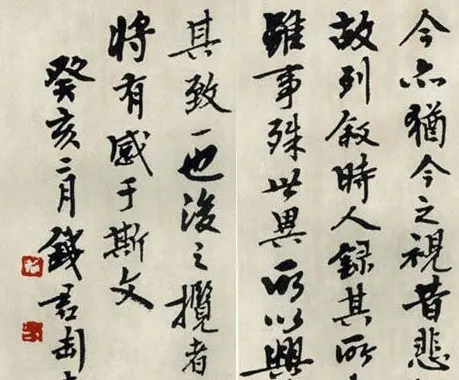 今亦猶今之視昔悲
故列叙時人録其所
雖事殊世異所以興
其致一也後之攬者
將有感于斯文
癸亥二月錢君匋